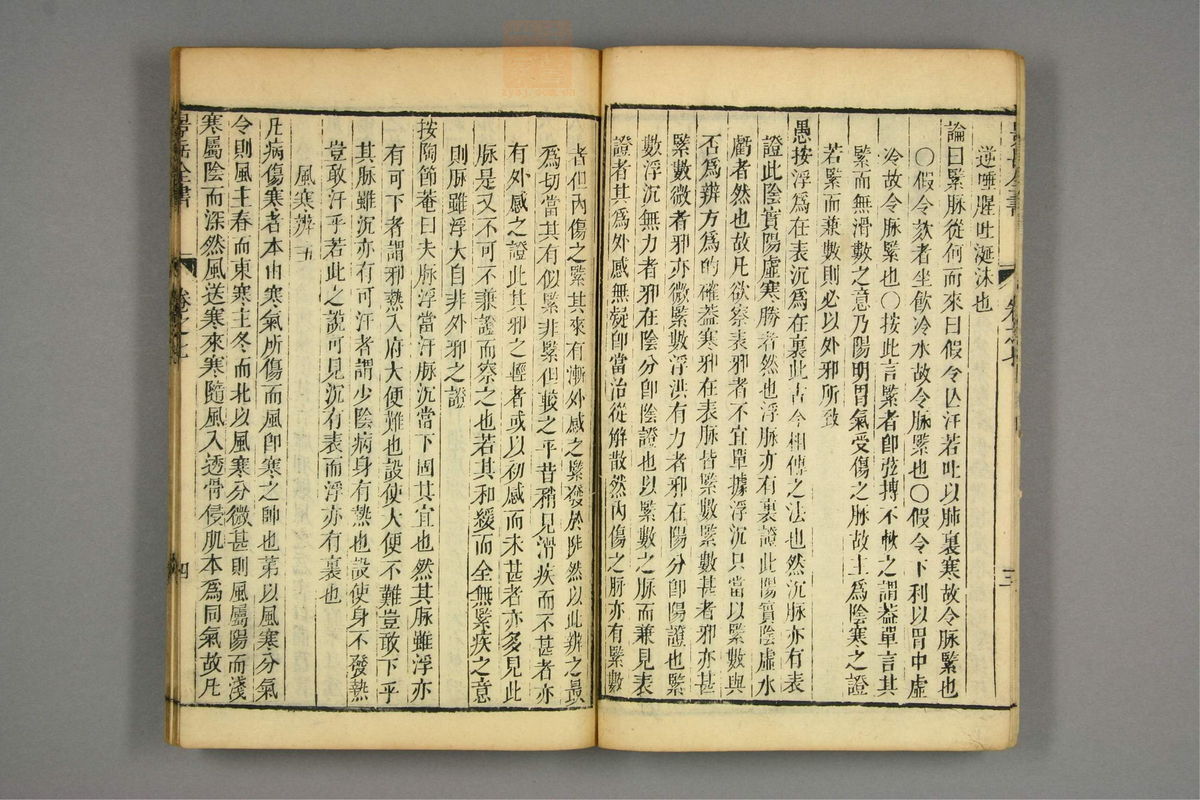 逆唾腥吐涎沫也
論曰緊脉從何而來曰假令亾汗若吐以肺裏寒故令脉緊也
○假令欬者坐飲冷水故令脉緊也○假令下利以胃中虛
冷故令脉緊也○按此言緊者卽弦搏不輭之謂葢單言其
緊而無滑數之意乃陽明胃氣受傷之脉故主爲陰寒之證
若緊而兼數則必以外邪所致
愚按浮爲在表沉爲在裏此古今相傳之法也然沉脉亦有表
證此陰實陽虛寒勝者然也浮脉亦有裏證此陽實陰虛水
虧者然也故凡欲察表邪者不宜單據浮沉只當以緊數與
否爲辨方爲的確葢寒邪在表脉皆緊數緊數甚者邪亦甚
緊數微者邪亦微緊數浮洪有力者邪在陽分卽陽證也緊
數浮沉無力者邪在陰分卽陰證也以緊數之脉而兼見表
證者其爲外感無疑卽當治從解散然內傷之脉亦有緊數
者但內傷之緊其來有漸外感之緊發於陡然以此辨之最
爲切當其有似緊非緊但較之平昔稍見滑疾而不甚者亦
有外感之證此其邪之輕者或以初感而未甚者亦多見此
脉是又不可不兼證而察之也若其和緩而全無緊疾之意
則脉雖浮大自非外邪之證
按陶節菴曰夫脉浮當汗脉沉當下固其宜也然其脉雖浮亦
有可下者謂邪熱入府大便難也設使大便不難豈敢下乎
其脉雖沉亦有可汗者謂少陰病身有熱也設使身不發熱
豈敢汗乎若此之說可見沉有表而浮亦有裏也
風寒辨 五
凡病傷寒者本由寒氣所傷而風卽寒之帥也第以風寒分氣
令則風主春而東寒主冬而北以風寒分微甚則風屬陽而淺
寒屬陰而深然風送寒來寒隨風入透骨侵肌本爲同氣故凡
景岳全書
卷之七
三
四